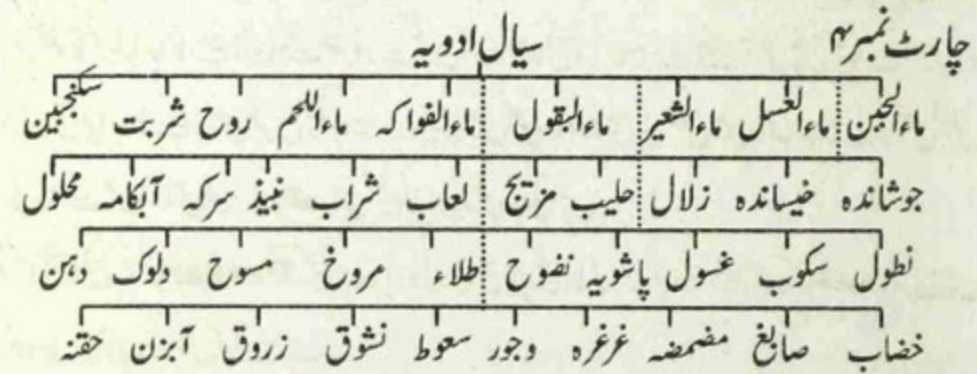 چارٹ نمبر۴
سیال ادویہ
ماءالجبن ماءالعسل ماءالشعیر ماءالبقول ماءالفواکہ ماءاللحم روح شربت سکنجبین
جوشاندہ خیساندہ زلال حلیب مزیج لعاب شراب نبیذ سرکہ آبکامہ محلول
نطول سکوب غسول پاشویہ نضوح طلاء مروخ مسوح دلوک دہن
خضاب صابغ مضمضہ غرغرہ وجور سعوط نشوق زروق آبزن حقنہ